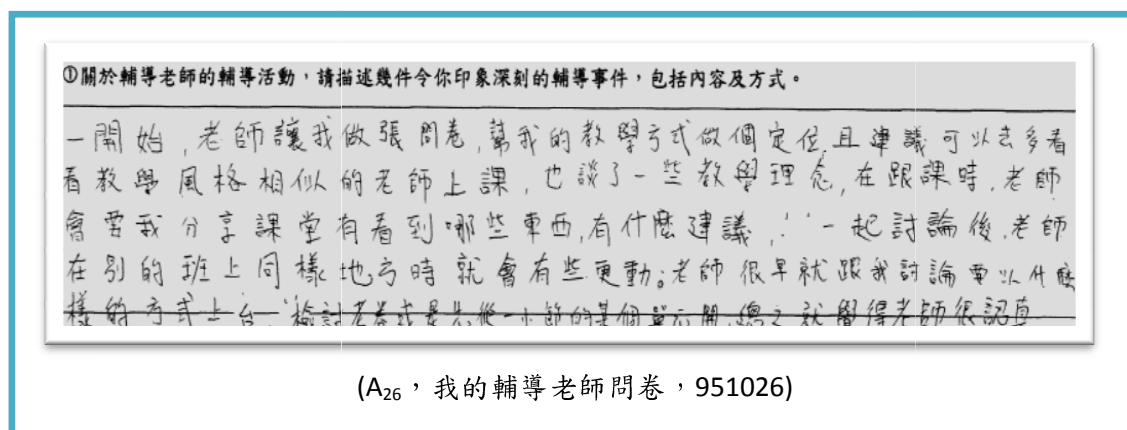 ①關於輔導老師的輔導活動，請描述幾件令你印象深刻的輔導事件，包括內容及方式。
一開始,老師讓我做張問卷,幫我的教學方式做個定位,且建議可以去多看
看教學風格相似的老師上課,也談了一些教學理念,在跟課時,老師
會要我分享課堂有看到哪些東西,有什麼建議, 一起討論後,老師
在別的班上同樣地方時就會有些更動;老師很早就跟我討論要以什麼
樣的方式上台,檢討考卷或是先從一小節的某個單元開,總之就覺得老師很認真
(A26，我的輔導老師問卷，951026)